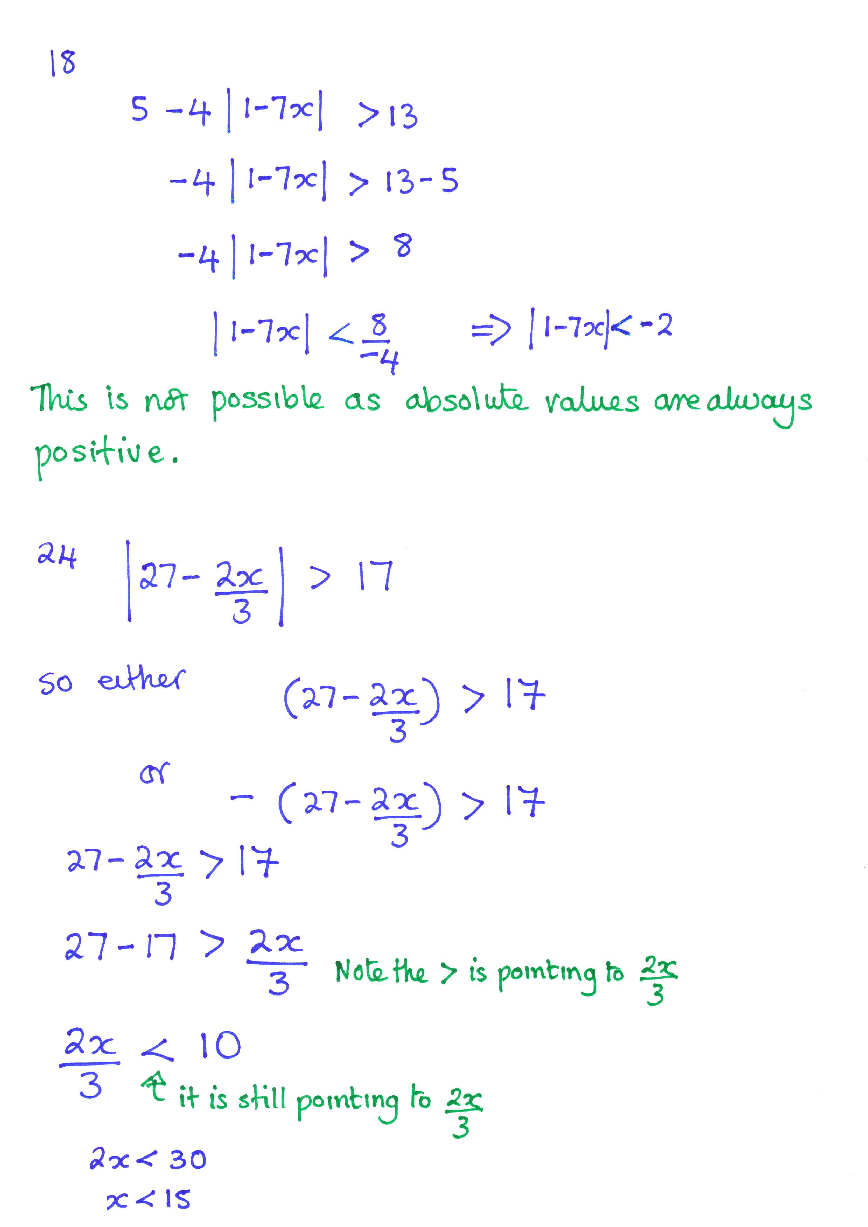 18
5 - 4 | 1-7x | > 13
-4 | 1-7x | > 13-5
-4 | 1-7x | > 8
| 1-7x | < 8/-4 ⇒ | 1-7x | < -2
This is not possible as absolute values are always
positive.
24 | 27 - 2x/3 | > 17
so either (27 - 2x/3) > 17
or - (27 - 2x/3) > 17
27 - 2x/3 > 17
27 - 17 > 2x/3 Note the > is pointing to 2x/3
2x/3 < 10
↑ it is still pointing to 2x/3
2x < 30
x < 15